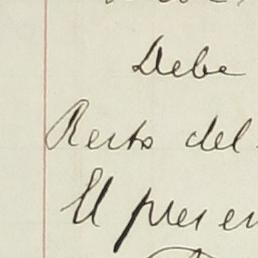 Debe
Resto del
El presen